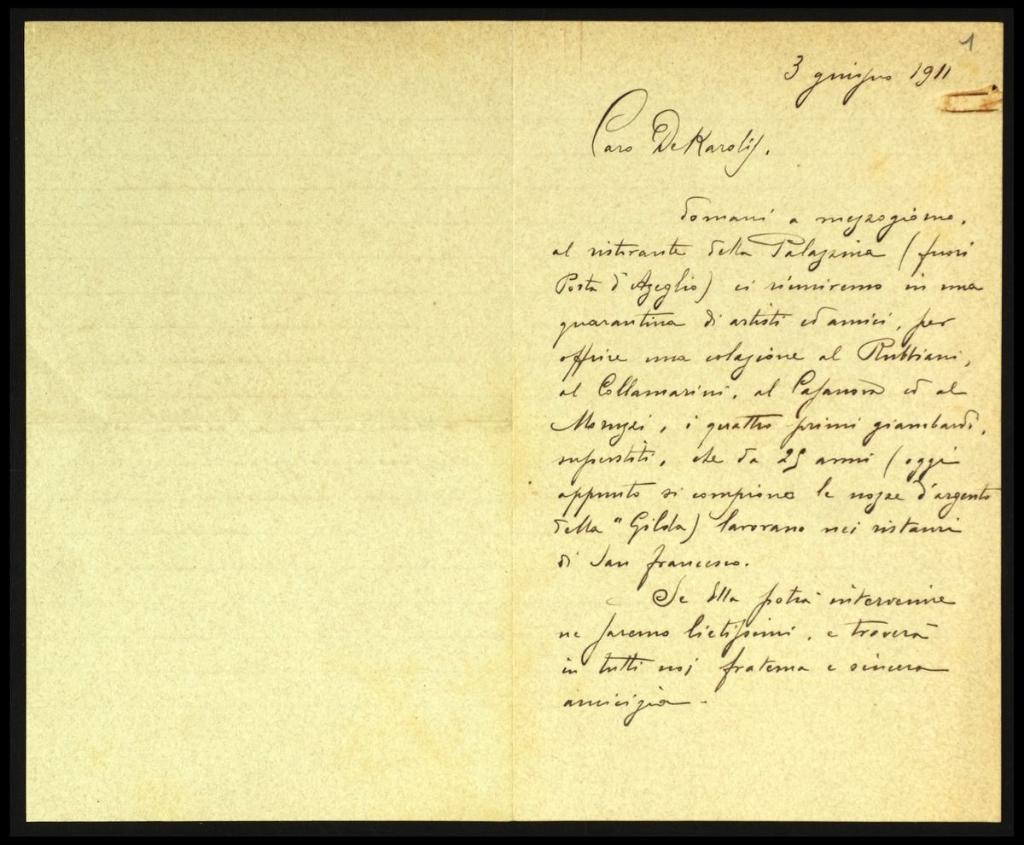 1
3 giugno 1911
Caro De Karolis.
domani a mezzogiorno,
al ristorante della Palazzina (fuori
Porta d'Azeglio) ci riuniremo in una
quarantina di artisti ed amici, per
offrire una colazione al Rubbiani,
al Collamarini, al Casanova ed al
, i quattro primi giambardi,
superstiti, che da 25 anni (oggi
appunto si compiono le nozze d'argento
della "Gilda) lavorano nei ristauri
di San Francesco.
Se Ella potrà intervenire
ne saremo lietissimi, e troverà
in tutti noi fraterna e sincera
amicizia -